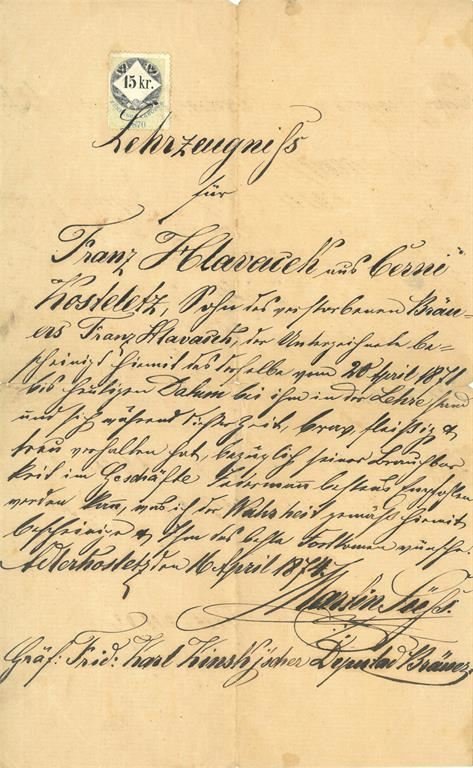 15 kr.
1870
Lehrzeugniss
für
Franz Hlavacek aus Černi
Kosteletz, Sohn des verstorbenen Bräu-
ers Franz Hlavacek, der Unterzeichnete be-
scheinigt hiemit das derselbe vom 20 April 1871
bis heutigen Datum bei ihm in der Lehre stand
und sich während dieser Zeit, brav, fleissig &
treu verhalten hat, bezüglich seiner Brauchbar
keit im Geschäfte Jedermann bestens Empfohlen
werden kann, was ich der Wahrheit gemäß hiemit
bescheinige & Ihm das beste Fortkommen wünsche.
Adlerkosteletz den 16 April 1874
Martin
Gräf: Frid: Karl Kinsky'scher Deputad Bräuer.